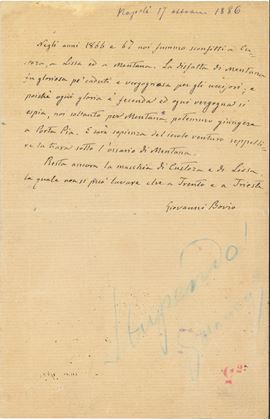 Napoli 17 ottobre 1886
Negli anni 1866 e 67 noi fummo sconfitti a Cu-
stoza, a Lissa ed a Mentana. La disfatta di Mentana
fu gloriosa pe' caduti e vergognosa per gli uccisori; e
poichè ogni gloria è feconda ed ogni vergogna si
espia, noi soltanto per Mentana potemmo giungere
a Porta Pia. E sarà sapienza del secolo venturo seppelli-
re la tiara sotto l'ossario di Mentana.
Resta ancora la macchia di Custoza e di Lissa,
la quale non si può lavare che a Trento e a Trieste
Giovanni Bovio
Stupendo!